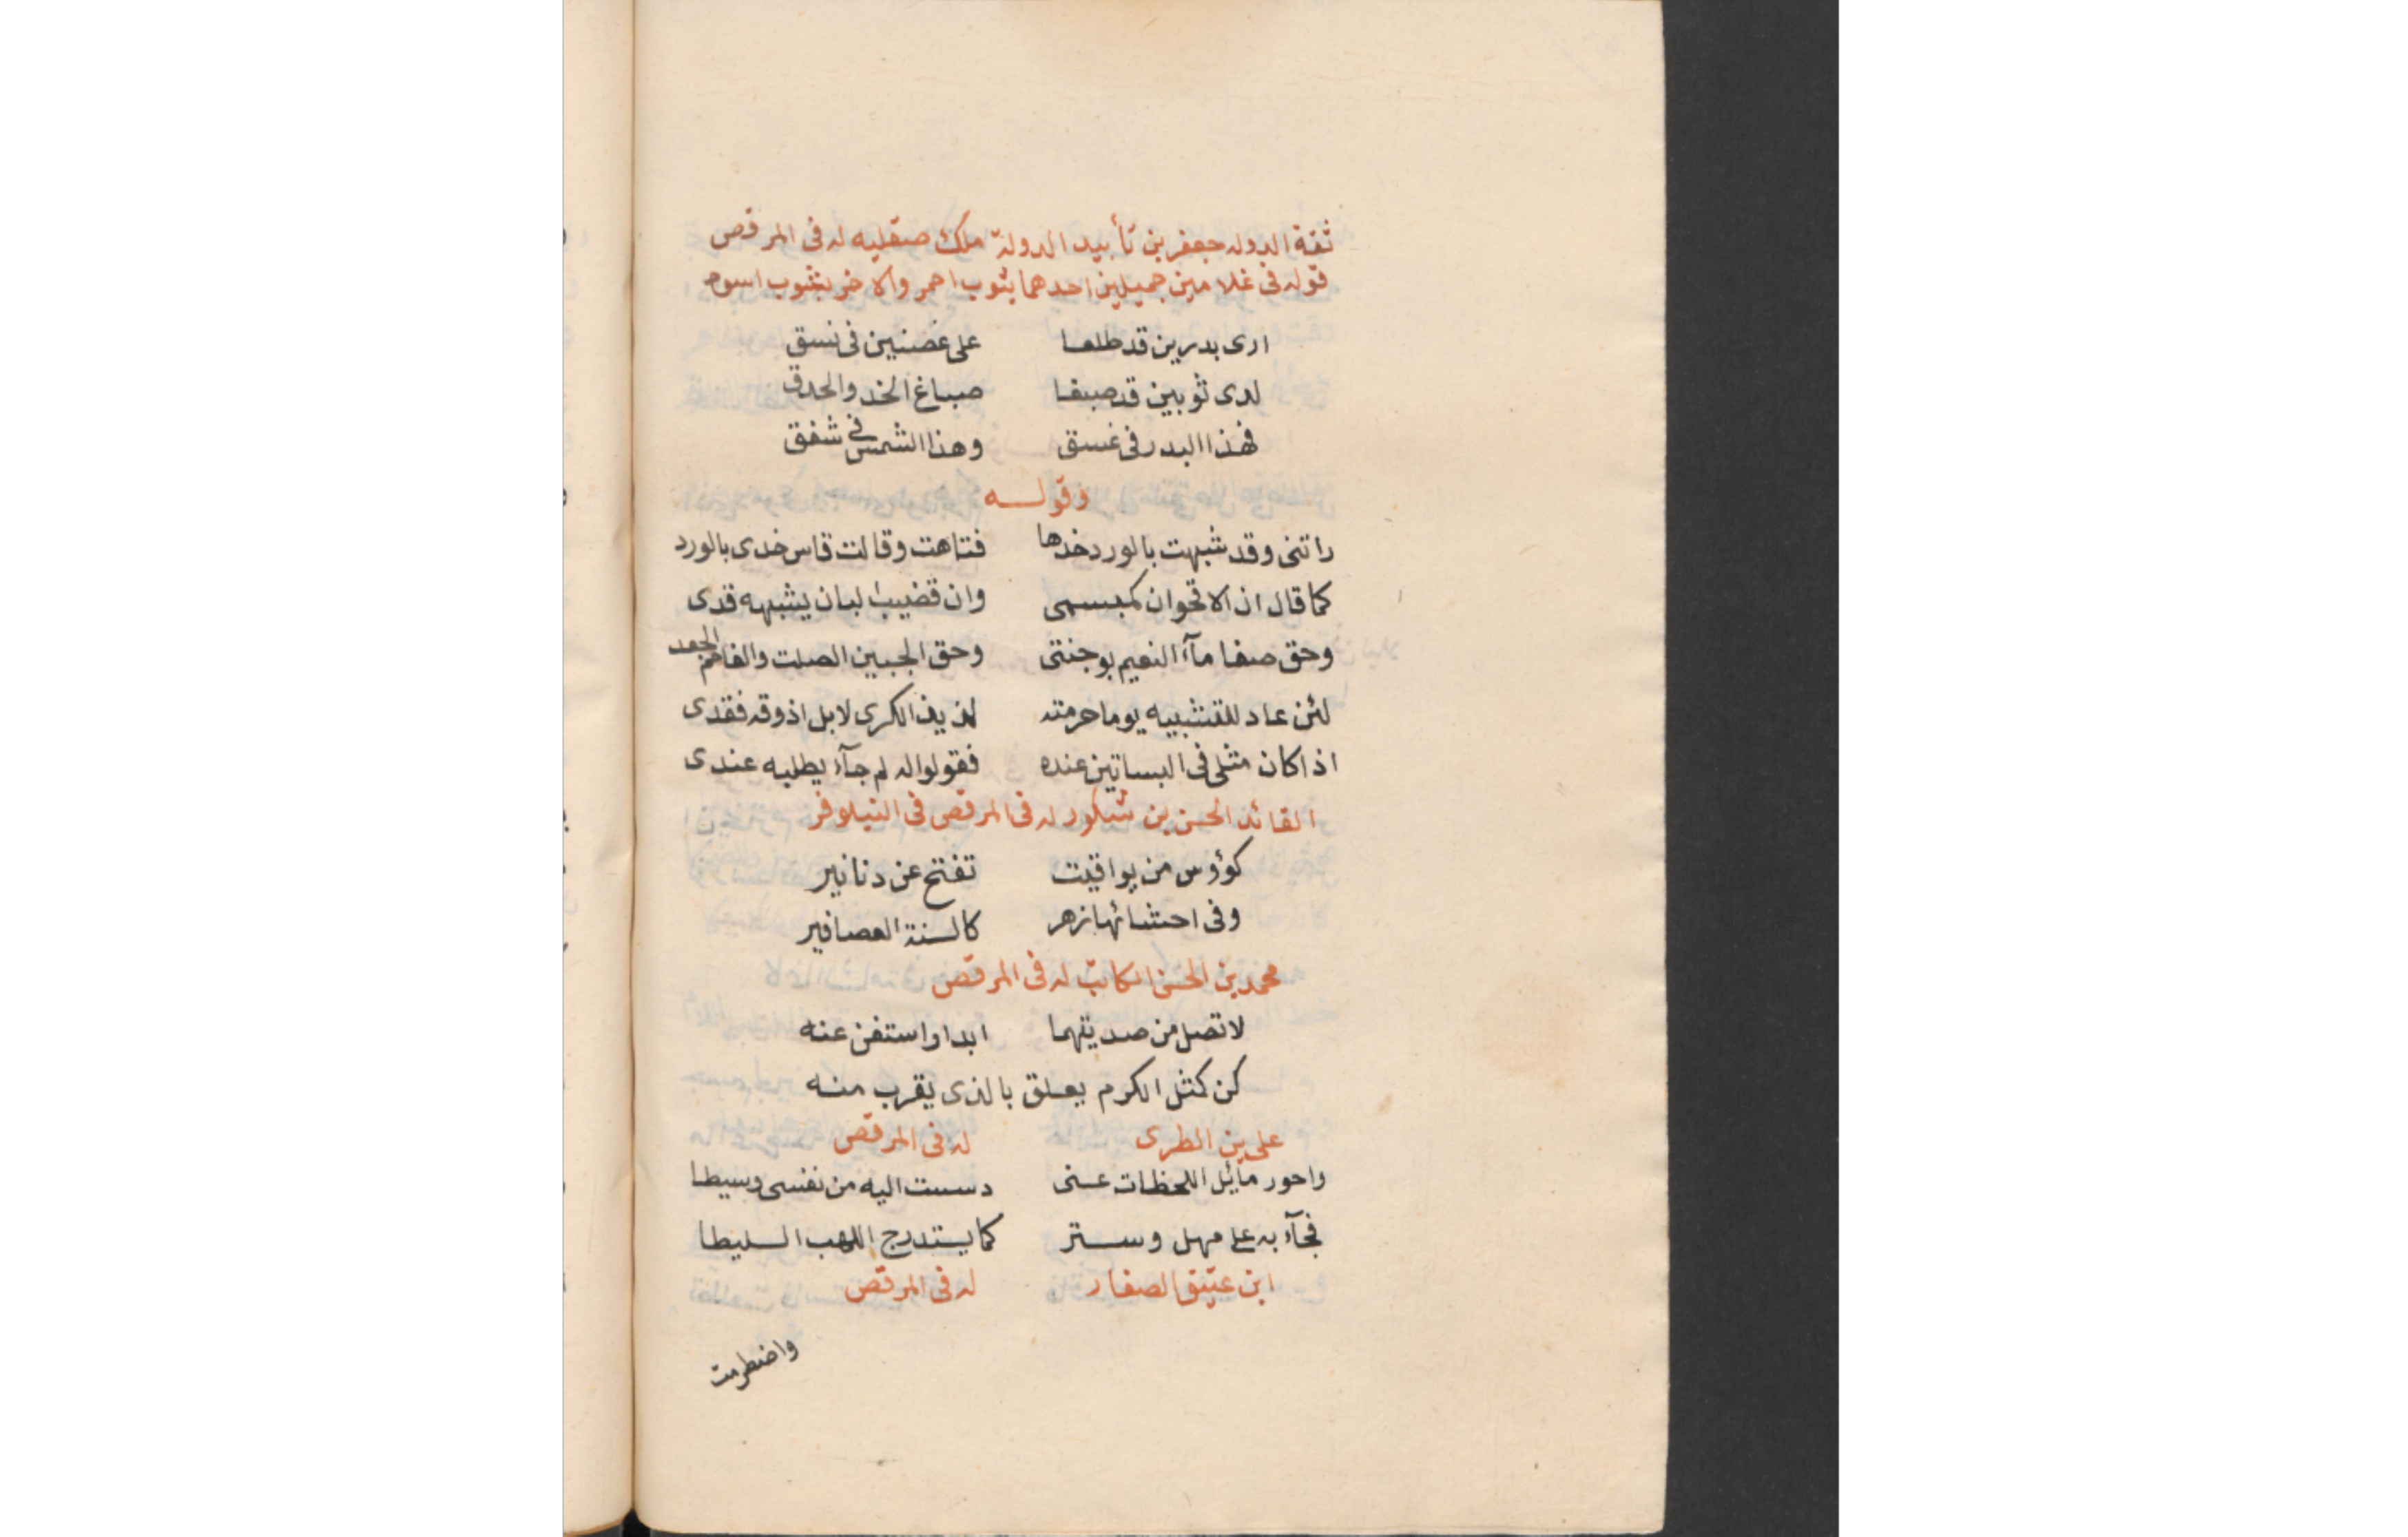 ثقة الدوله جعفر بن تأييد الدولة ملك صقليه له فى المرقص
قوله فى غلامين جميلين احدهما بثوب احمر والاخر بثوب اسود
ارى بدرين قد طلعا على غصنين فى نسق
لدى ثوبين قد صبغا صباغ الخد والحدق
فهذا البدر فى غسق وهذا الشمس فى شفق
وقوله
راتنى وقد شبهت بالورد خدها فتاهت وقالت قاس خدى بالورد
كما قال ان الاقحوان كمبسمى وان قضيب البان يشبهه قدى
وحق صفا مآء النعيم بوجنتى وحق الجبين الصلت والفاحم الجعد
لئن عاد للتشبيه يوما حرمته لذيذ الكرى لا بل اذوقه فقدى
اذا كان مثلى فى البساتين عنده فقولوا له لم جآء يطلبه عندى
القائد الحسن بن شكور له فى المرقص فى النيلوفر
كوؤس من يواقيت تفتح عن دنانير
وفى احشائها زهر كالسنة العصافير
محمد بن الحسن الكاتب له فى المرقص
لا تصل من صد يتهما ابدا واستغن عنه
كن كمثل الكرم يعلق بالذى يقرب منه
على بن الطرى له فى المرقص
واحور مائل اللحظات عنى دسست اليه من نفسى وسيطا
فجآء به على مهل وستر كما يستدرج اللهب السليطا
ابن عتيق الصفار له فى المرقص
واضطرمت